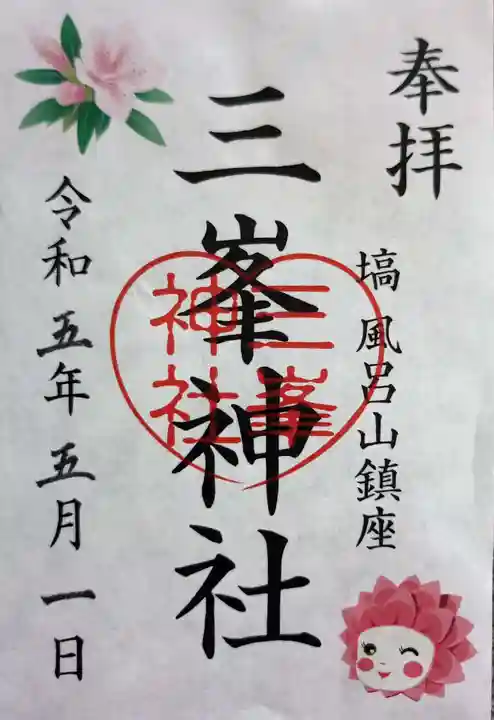 奉拝
塙 風呂山鎮座
三峯神社
三峯
神社
令和 五年 五月 一日